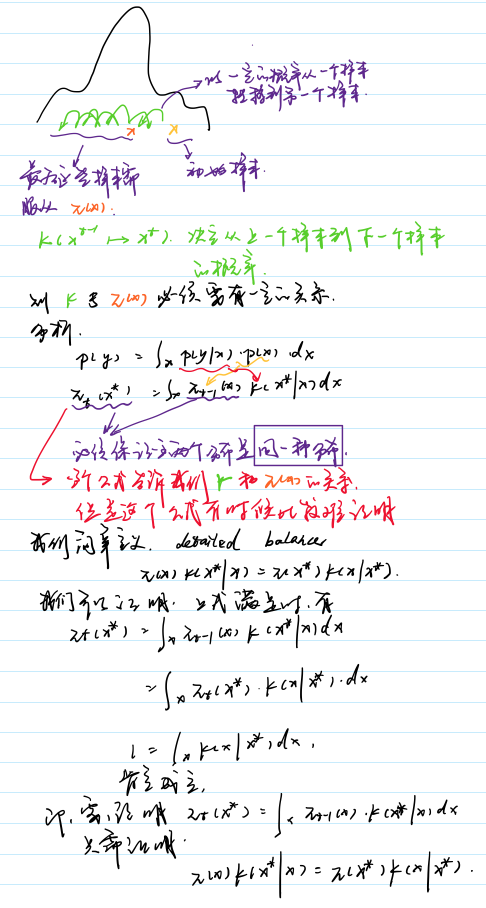 以一定的概率从一个样本
转移到另一个样本.
x x
最后这些样本需 初始样本.
服从 π(x).
K(x^{t-1} ↦ x^t). 决定从上一个样本到下一个样本
的概率.
则 K 与 π(x) 必须需有一定的关系.
分析.
p(y) = ∫_x p(y|x) · p(x) · dx
π_t(x*) = ∫_x π_{t-1}(x) K(x*|x) dx
必须保证这两个分布是同一种分布.
这个公式告诉我们 K 和 π(x) 的关系.
但是这个公式有时候比较难证明
我们词章定义. detailed balance
π(x) K(x*|x) = π(x*) K(x|x*).
我们可以证明. 上式满足时, 有
π_t(x*) = ∫_x π_{t-1}(x) K(x*|x) dx
= ∫_x π_t(x*) · K(x|x*) · dx
1 = ∫_x K(x|x*) dx,
肯定成立,
即, 需证明 π_t(x*) = ∫_x π_{t-1}(x) · K(x*|x) dx
只需证明.
π(x) K(x*|x) = π(x*) K(x|x*).